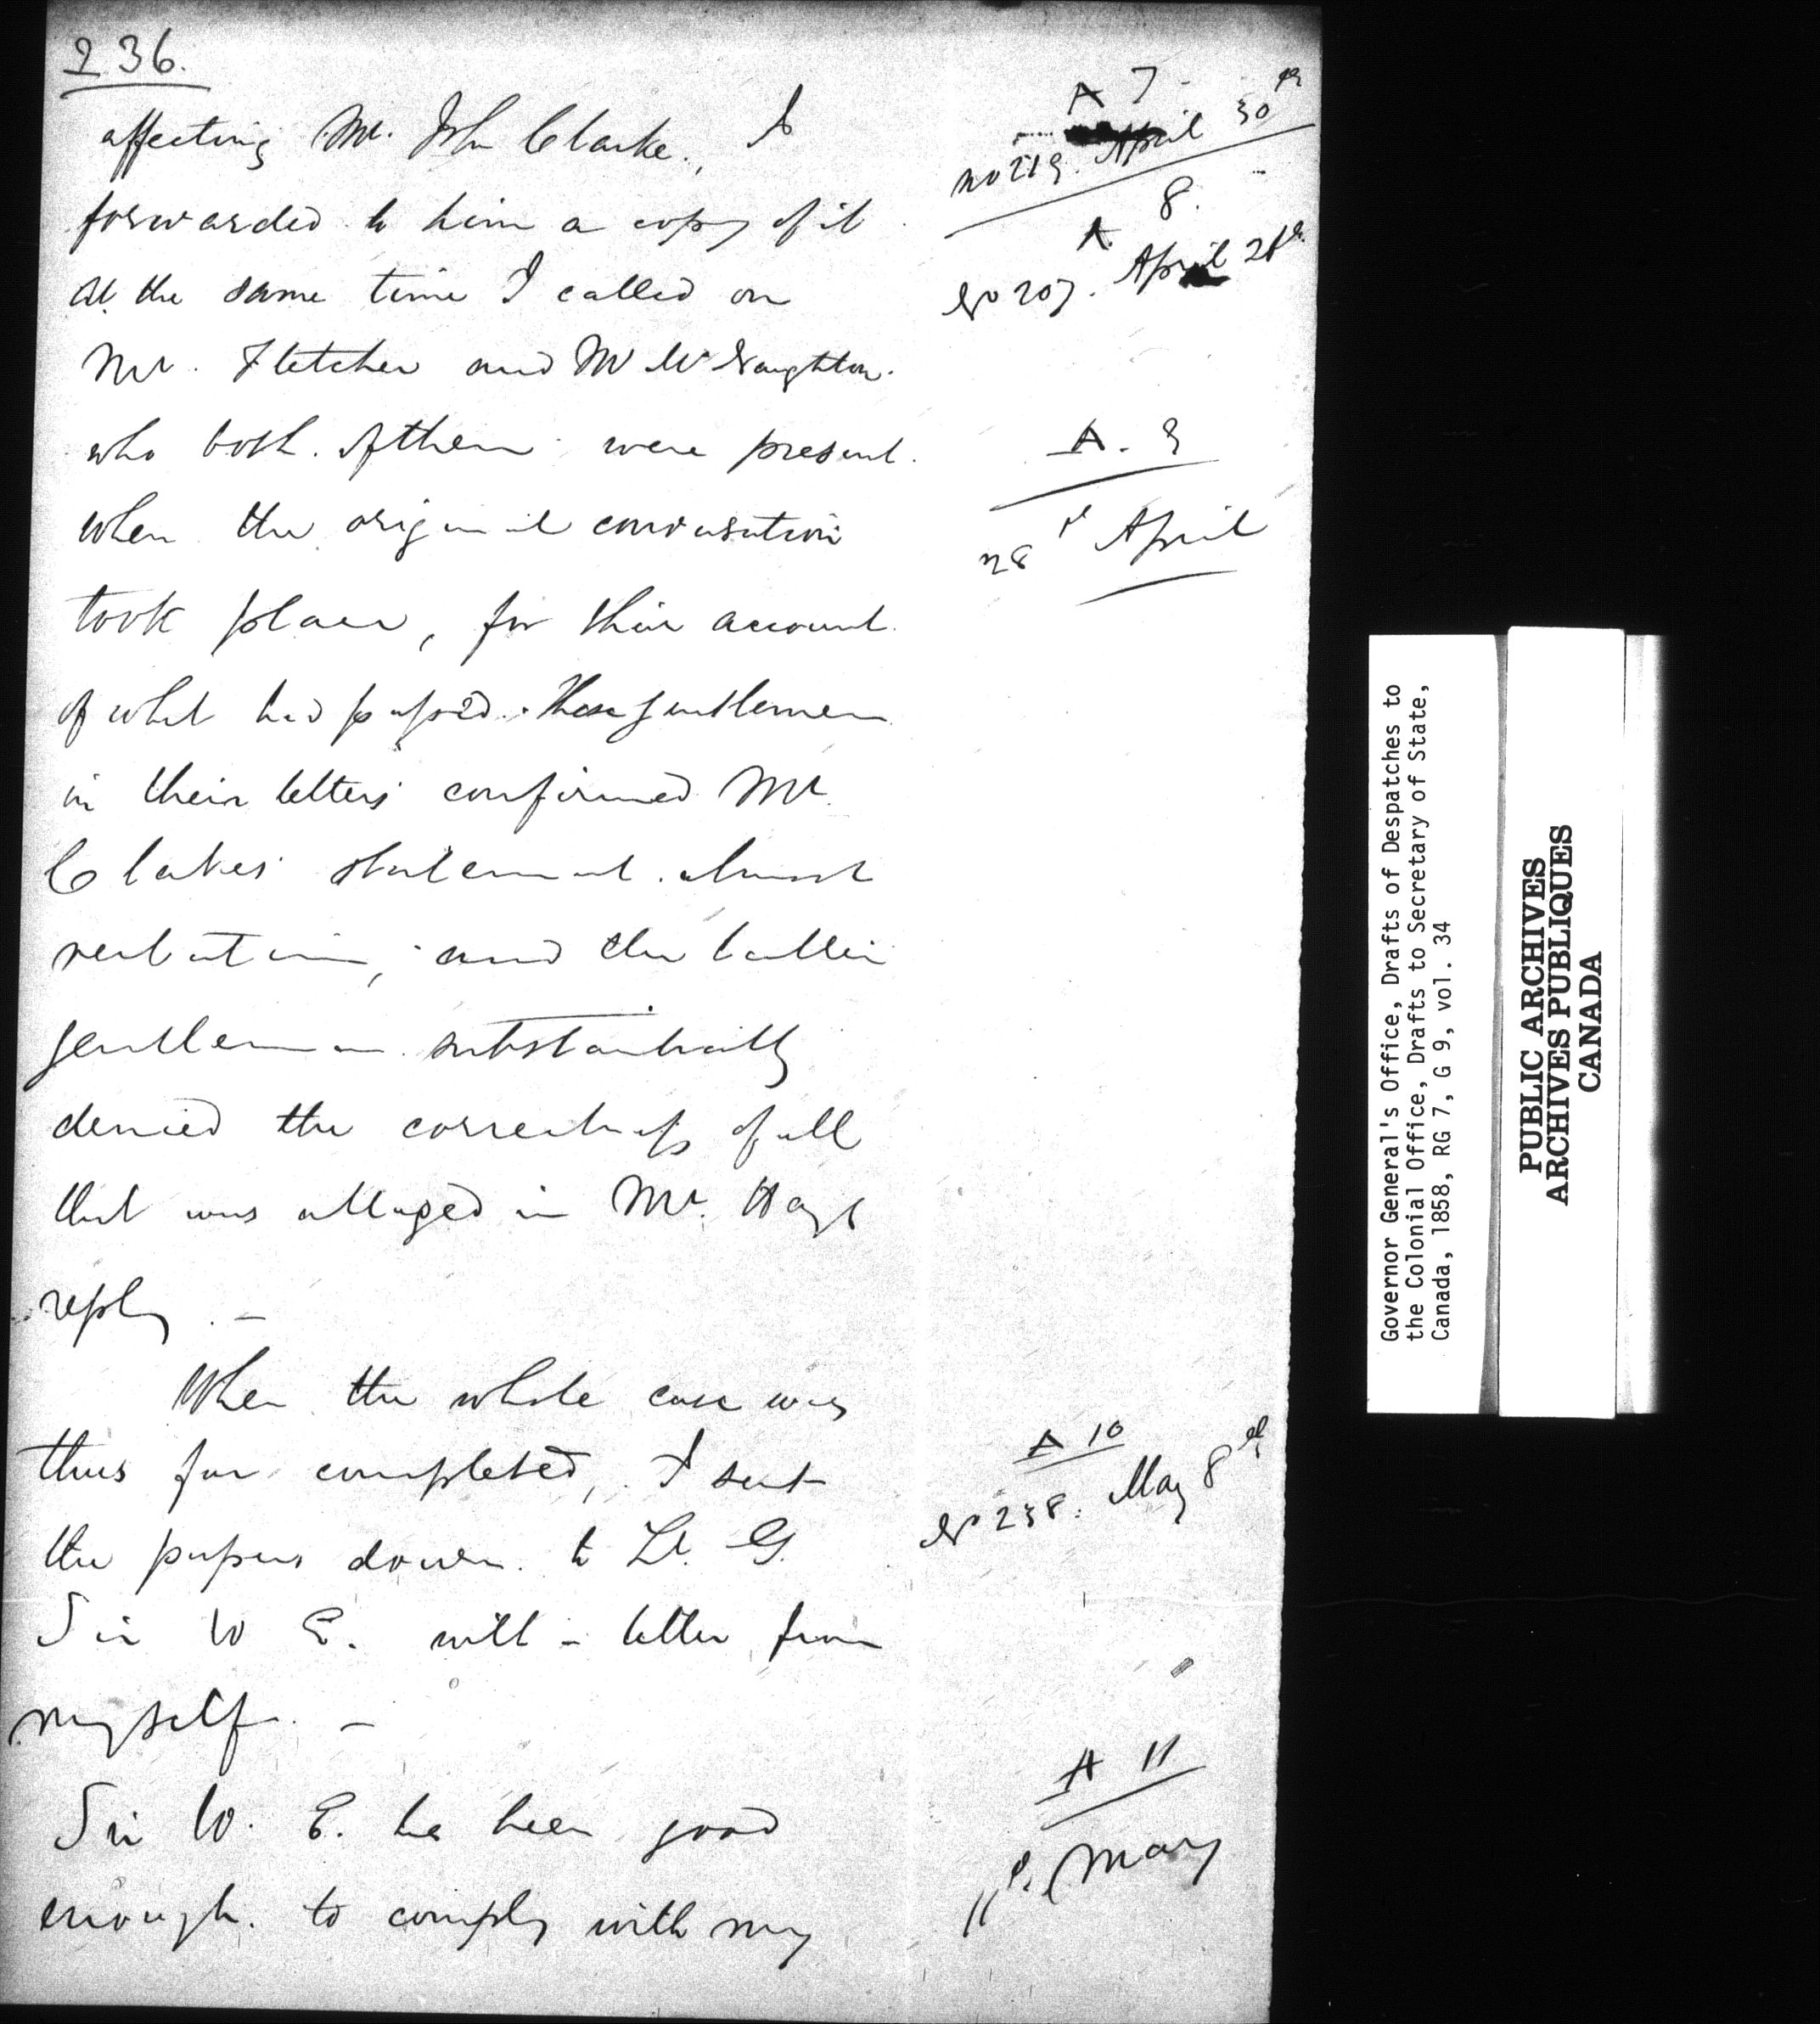 236.
affecting Mr. John Clarke, I
forwarded to him a copy of it
At the same time I called on
Mr. Fletcher and Mr McNaughton.
who both of them were present
when the original conversation
took place, for their account
of what had passed. These gentlemen
in their letters confirmed Mr.
Clarkes statement almost
verbatim, and the latter
gentleman substantially
denied the correctness of all
that was alleged in Mr. Hays
reply. –
When the whole case was
thus far completed, I sent
the papers down to Lt. G.
Sir W E. with a letter from
myself. –
Sir W. E. has been good
enough to comply with my
A 7
No 219. April 30th
A 8.
No 207. April
A. 9
28 April
A 10
No 238. May 8th
A 11
11 May
Governor General's Office, Drafts of Despatches to
the Colonial Office, Drafts to Secretary of State,
Canada, 1858, RG 7, G 9, vol. 34
PUBLIC ARCHIVES
ARCHIVES PUBLIQUES
CANADA